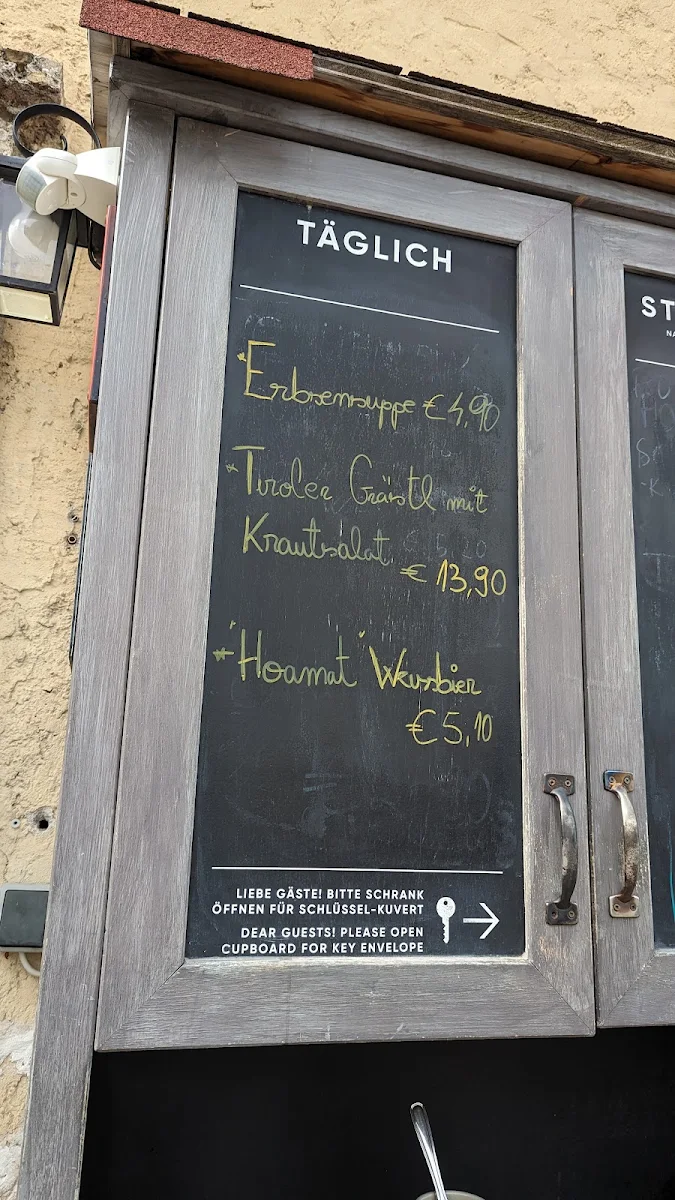 TÄGLICH
* Erbsensuppe € 4,90
* Tiroler Gröstl mit
Krautsalat
€ 13,90
* "Hoamat" Weissbier
€ 5,10
LIEBE GÄSTE! BITTE SCHRANK
ÖFFNEN FÜR SCHLÜSSEL-KUVERT
DEAR GUESTS! PLEASE OPEN
CUPBOARD FOR KEY ENVELOPE
ST